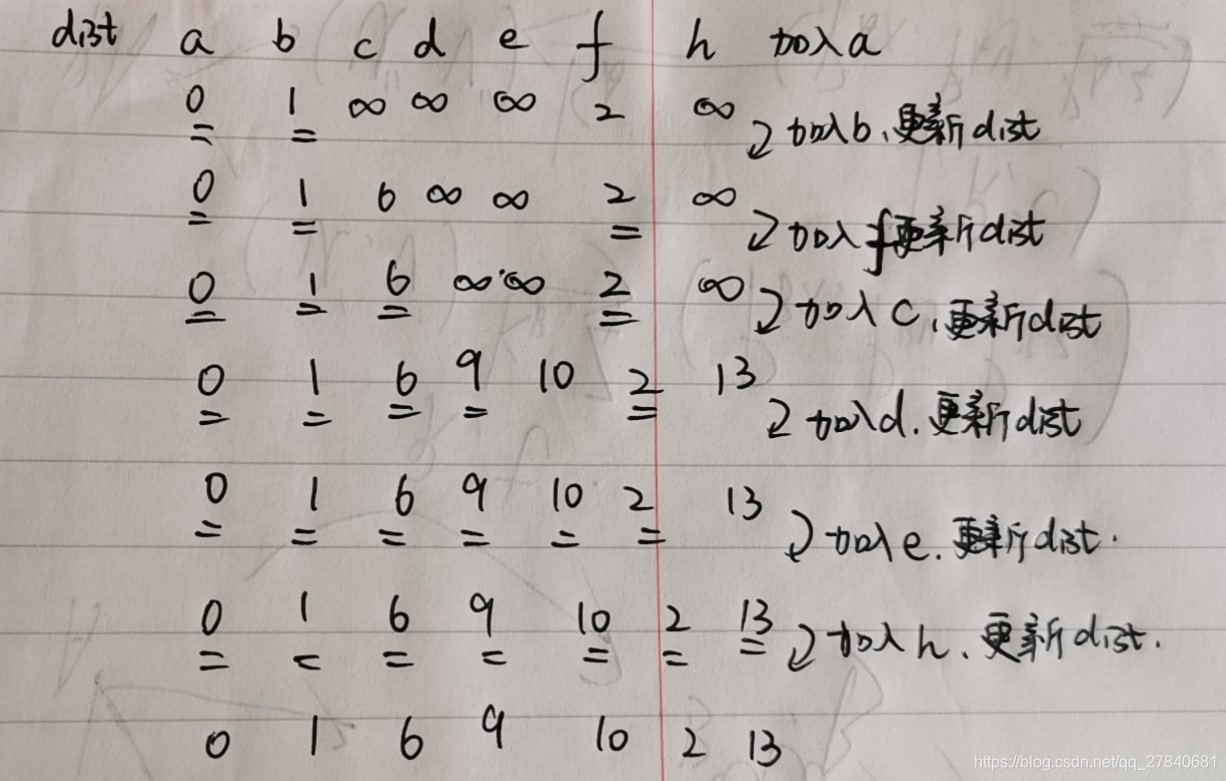 dist a b c d e f h 加入a
0 1 ∞ ∞ ∞ 2 ∞
加入b、更新dist
0 1 6 ∞ ∞ 2 ∞
加入f更新dist
0 1 6 ∞ ∞ 2 ∞
加入c、更新dist
0 1 6 9 10 2 13
加入d.更新dist
0 1 6 9 10 2 13
加入e.更新dist.
0 1 6 9 10 2 13
加入h、更新dist.
0 1 6 9 10 2 13
https://blog.csdn.net/qq_27840681